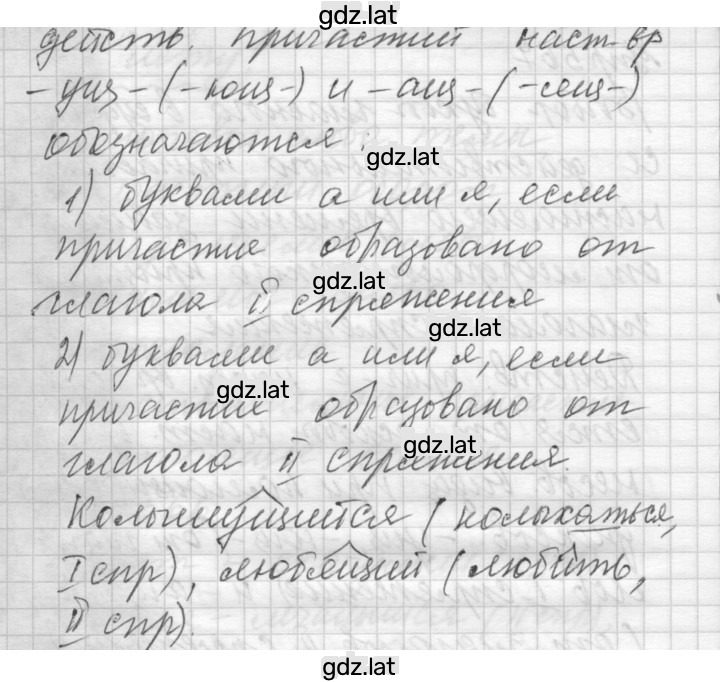 gdz.lat
действ. причастий наст.вр
-ущ-(-ющ-) и -ащ-(-ящ-)
обозначаются:
gdz.lat
1) буквами а или я, если
причастие образовано от
gdz.lat
глагола II спряжения
gdz.lat
2) буквами а или я, если
gdz.lat
причастие образовано от
gdz.lat
глагола II спряжения.
Колышущийся (колыхаться,
I спр), любящий (любить,
II спр).
gdz.lat